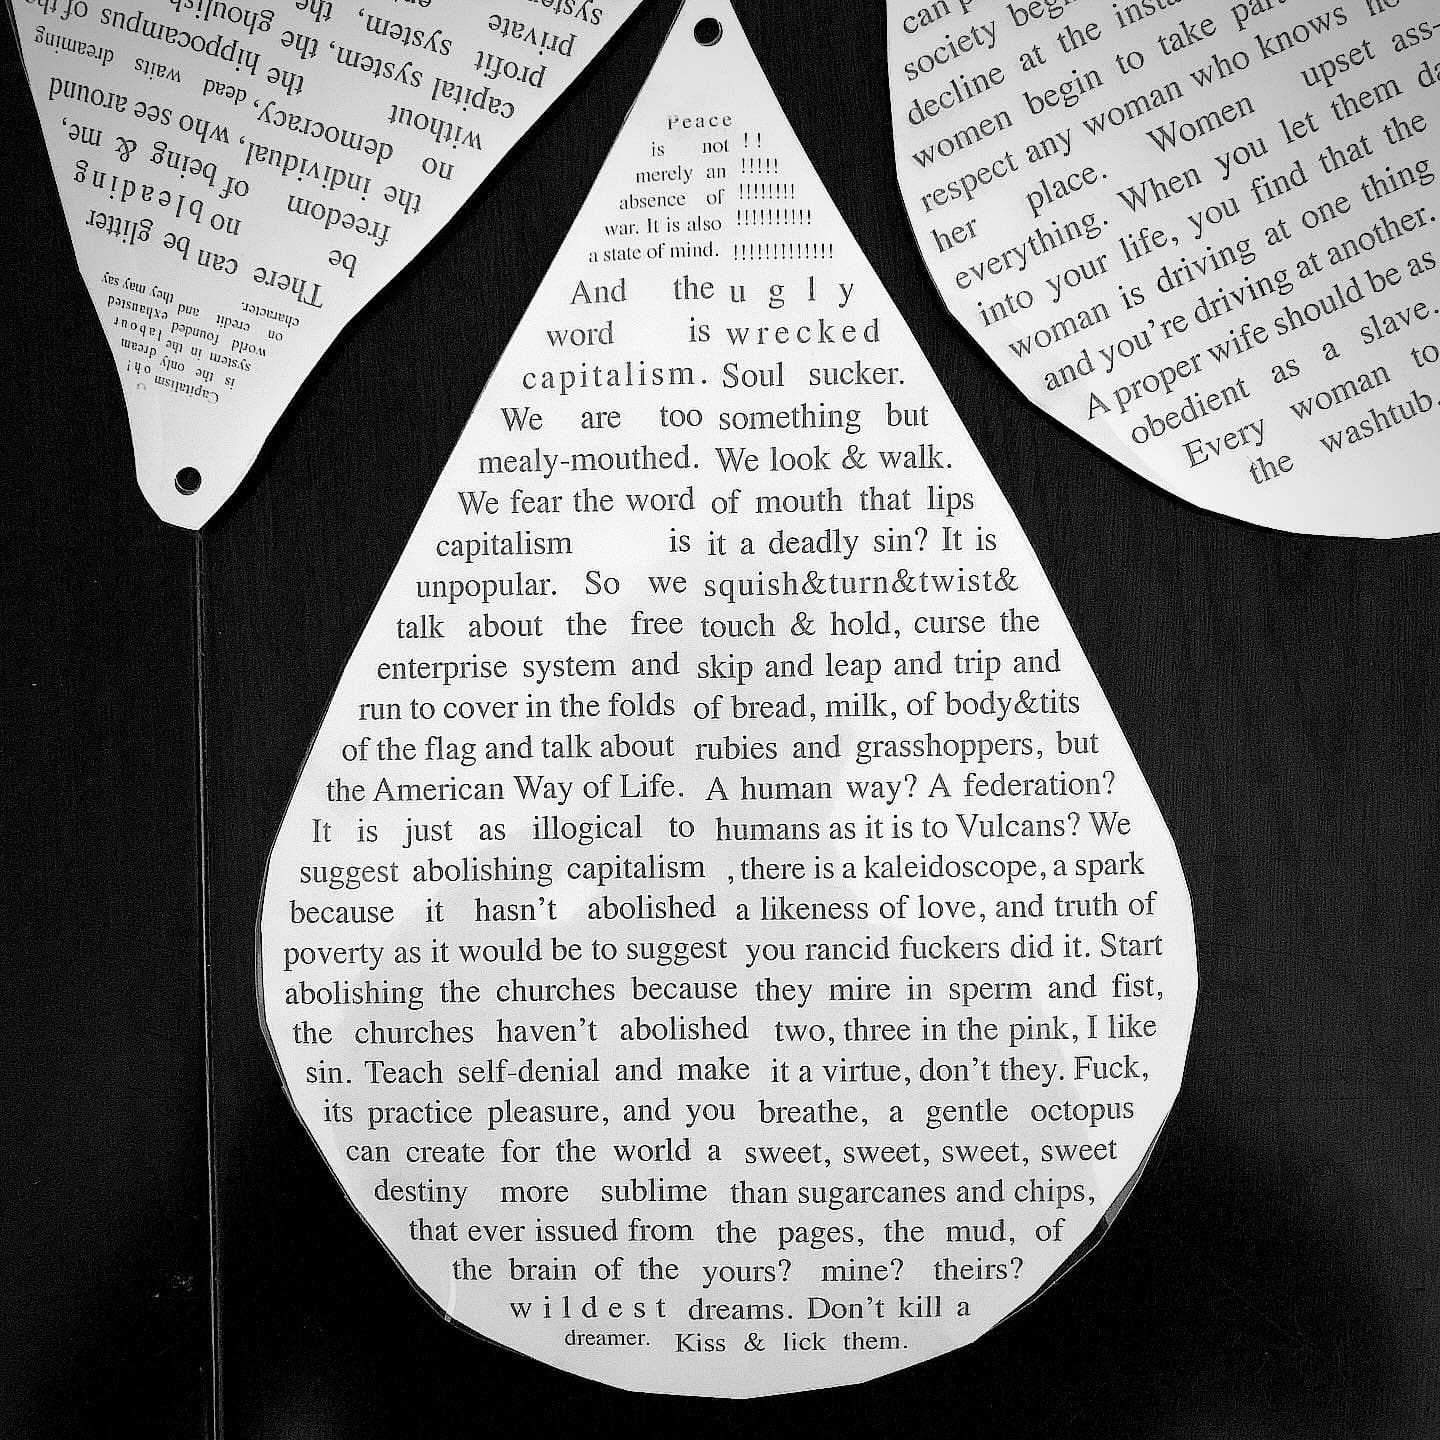 Peace
is not !!
merely an !!!!!
absence of !!!!!!!!
war. It is also !!!!!!!!!!
a state of mind. !!!!!!!!!!!!!
And the u g l y
word is wrecked
capitalism. Soul sucker.
We are too something but
mealy-mouthed. We look & walk.
We fear the word of mouth that lips
capitalism is it a deadly sin? It is
unpopular. So we squish&turn&twist&
talk about the free touch & hold, curse the
enterprise system and skip and leap and trip and
run to cover in the folds of bread, milk, of body&tits
of the flag and talk about rubies and grasshoppers, but
the American Way of Life. A human way? A federation?
It is just as illogical to humans as it is to Vulcans? We
suggest abolishing capitalism , there is a kaleidoscope, a spark
because it hasn't abolished a likeness of love, and truth of
poverty as it would be to suggest you rancid fuckers did it. Start
abolishing the churches because they mire in sperm and fist,
the churches haven't abolished two, three in the pink, I like
sin. Teach self-denial and make it a virtue, don't they. Fuck,
its practice pleasure, and you breathe, a gentle octopus
can create for the world a sweet, sweet, sweet, sweet
destiny more sublime than sugarcanes and chips,
that ever issued from the pages, the mud, of
the brain of the yours? mine? theirs?
w i l d e s t dreams. Don't kill a
dreamer. Kiss & lick them.
Capitalism oh!
is the only dream
system in the labour
world founded exhausted
on credit and they may say
character.
There can be glitter
be no bleading
freedom of being & me,
the individual, who see around
no democracy, dead waits dreaming
without the hippocampus of
capital system, the ghoulish
profit system, the
private
can
society
decline at the
women begin to take
respect any woman who knows
her place. Women upset ass-
everything. When you let them
into your life, you find that the
woman is driving at one thing
and you're driving at another.
A proper wife should be as
obedient as a slave.
Every woman to
the washtub.